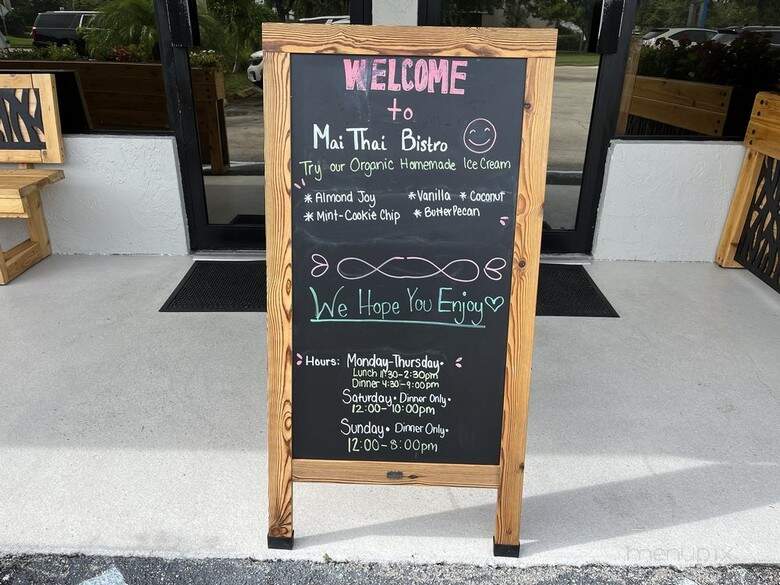 WELCOME
to
Mai Thai Bistro
Try our Organic Homemade Ice Cream
* Almond Joy * Vanilla * Coconut
* Mint-Cookie Chip * Butter Pecan
We Hope You Enjoy
Hours: Monday-Thursday•
Lunch 11:30-2:30pm
Dinner 4:30-9:00pm
Saturday• Dinner Only•
12:00-10:00pm
Sunday• Dinner Only•
12:00-8:00pm
menupix